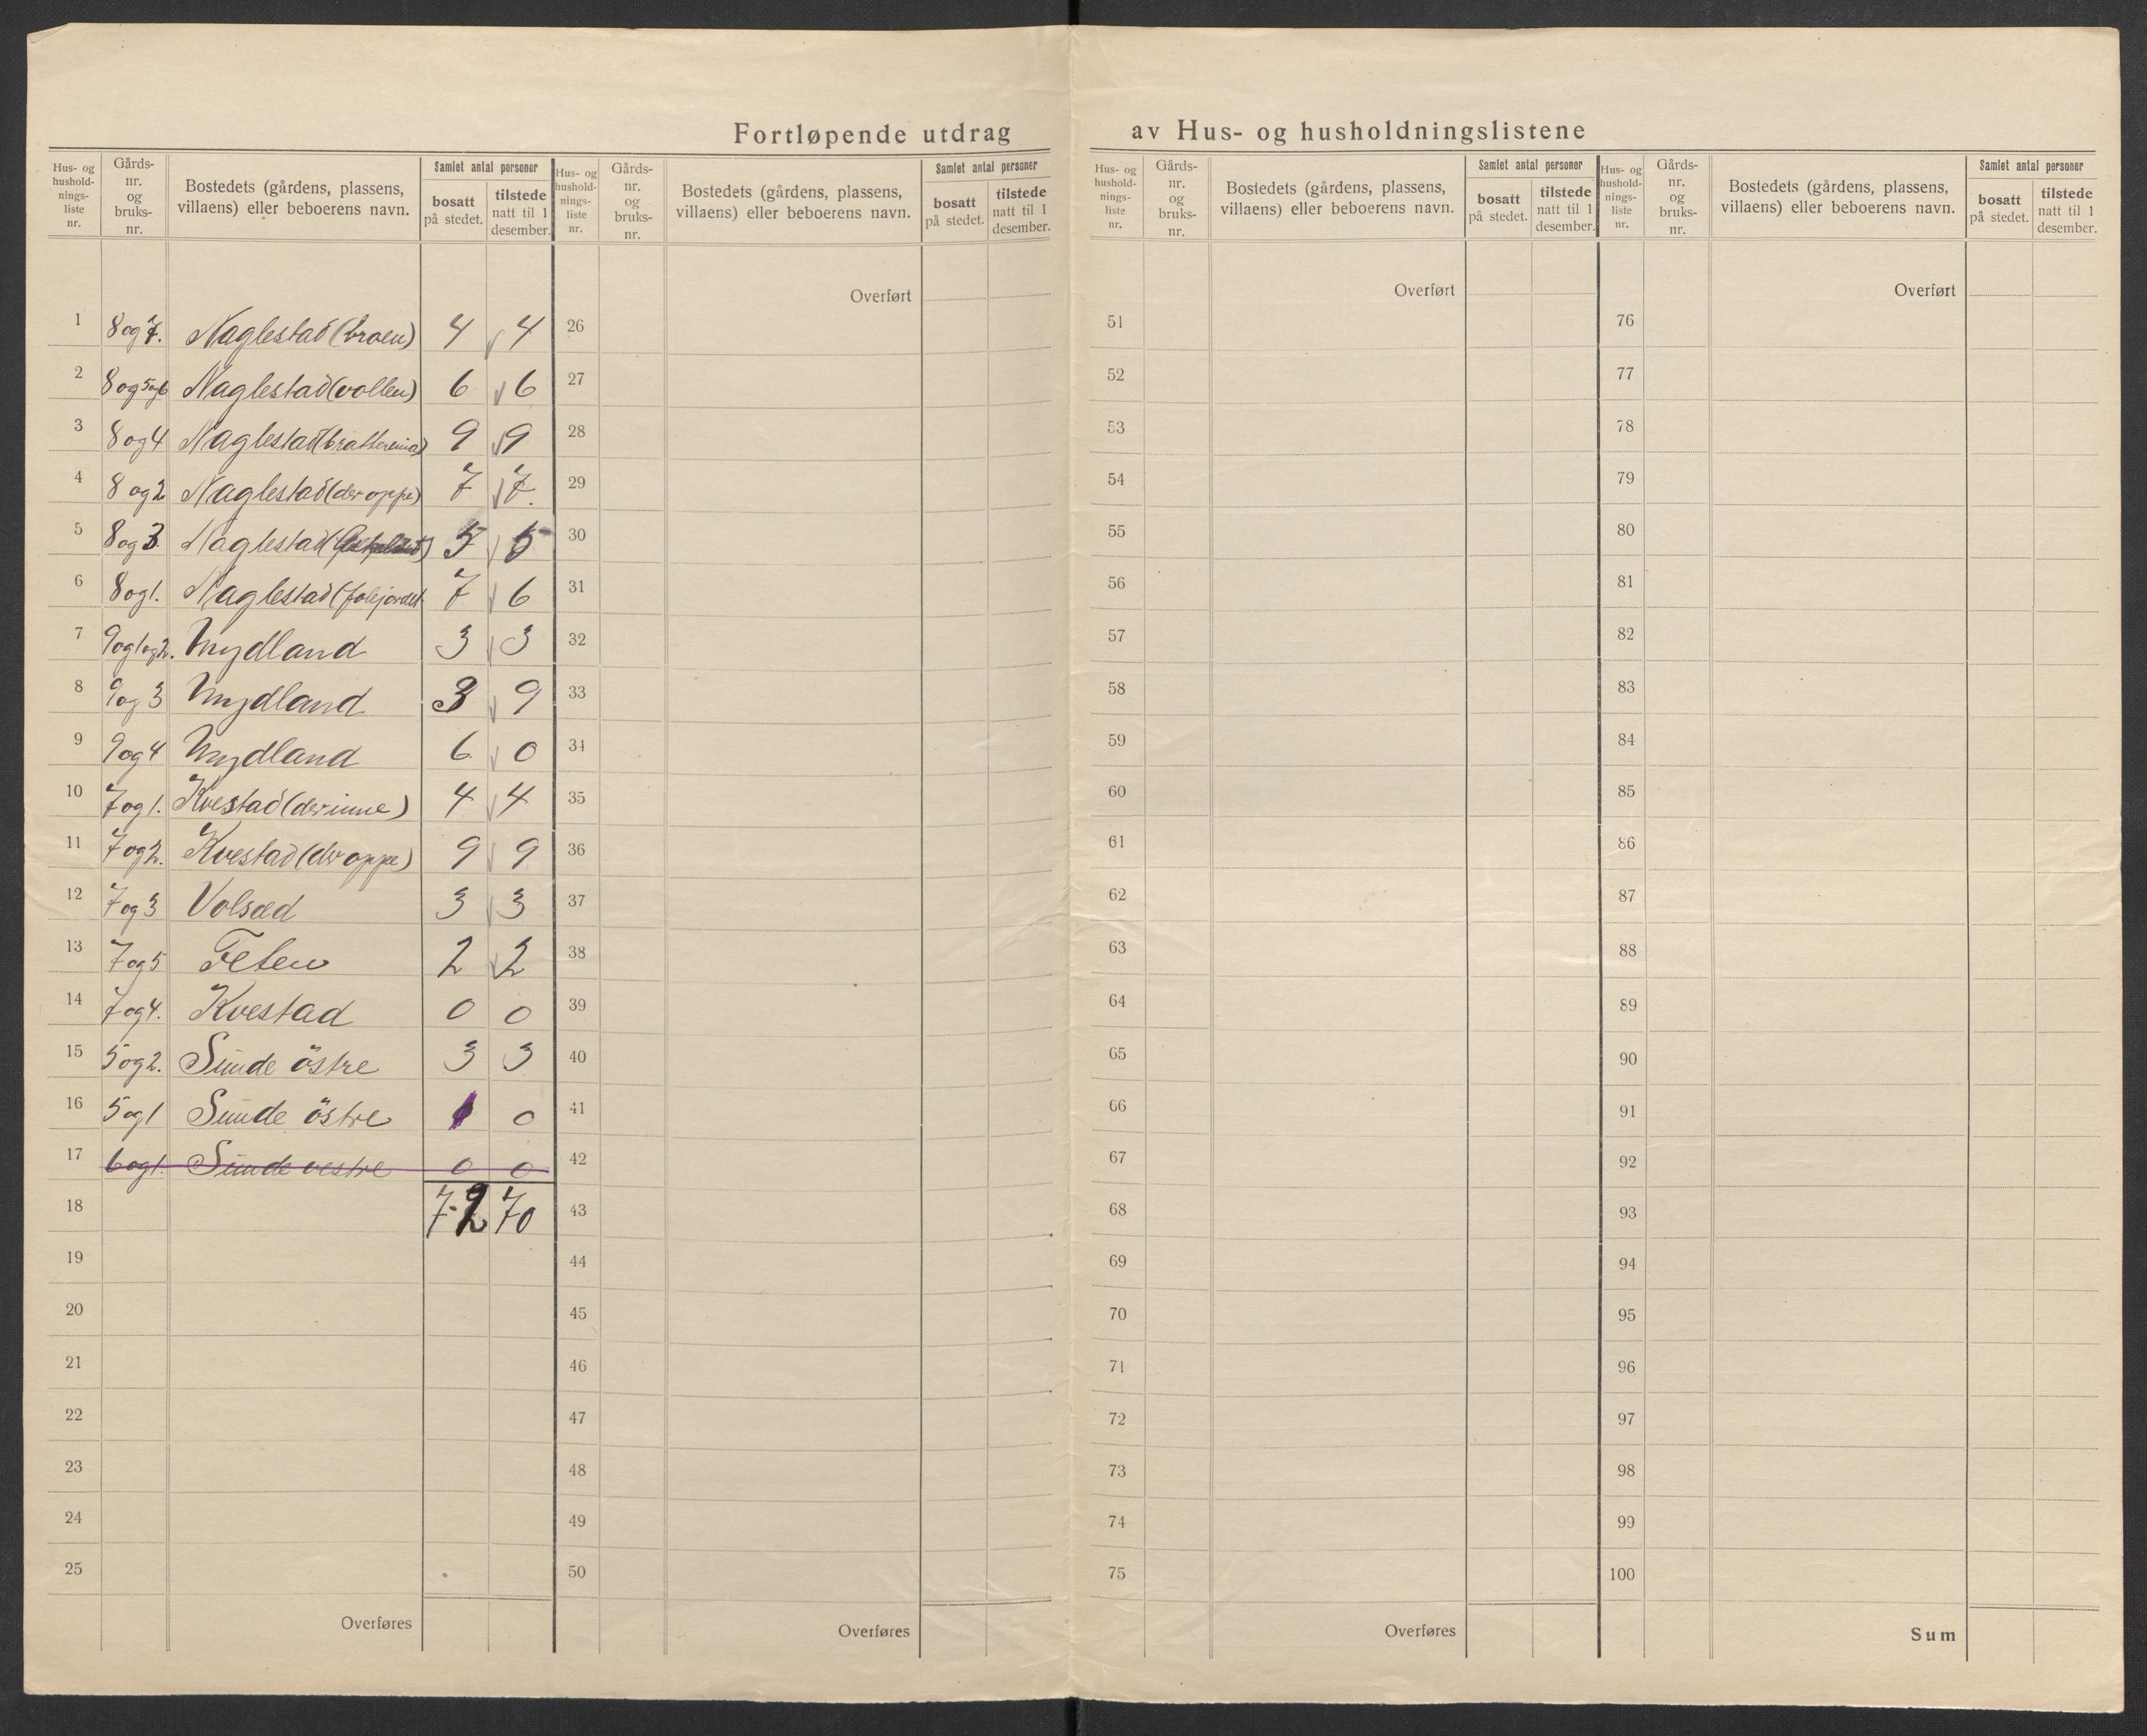 Fortløpende utdrag av Hus- og husholdningslistene
Hus- og hushold-nings-liste nr. Gårds-nr. og bruks-nr. Bostedets (gårdens, plassens, villaens) eller beboerens navn. Samlet antal personer bosatt på stedet. tilstede natt til 1 desember.
Hus- og hushold-nings-liste nr. Gårds-nr. og bruks-nr. Bostedets (gårdens, plassens, villaens) eller beboerens navn. Samlet antal personer bosatt på stedet. tilstede natt til 1 desember.
Hus- og hushold-nings-liste nr. Gårds-nr. og bruks-nr. Bostedets (gårdens, plassens, villaens) eller beboerens navn. Samlet antal personer bosatt på stedet. tilstede natt til 1 desember.
Hus- og hushold-nings-liste nr. Gårds-nr. og bruks-nr. Bostedets (gårdens, plassens, villaens) eller beboerens navn. Samlet antal personer bosatt på stedet. tilstede natt til 1 desember.
Overført Overført Overført
1 8 og 7. Naglestad (broen) 4 4 26 51 76
2 8 og 5 og 6 Naglestad (vollen) 6 6 27 52 77
3 8 og 4 Naglestad 9 9 28 53 78
4 8 og 2 Naglestad (der oppe) 7 7. 29 54 79
5 8 og 3 Naglestad 5 5 30 55 80
6 8 og 1. Naglestad 7 6 31 56 81
7 9 og 1 og 2. Mydland 3 3 32 57 82
8 9 og 3 Mydland 3 9 33 58 83
9 9 og 4 Mydland 6 0 34 59 84
10 7 og 1. Kvestad (der inne) 4 4 35 60 85
11 7 og 2. Kvestad (der oppe) 9 9 36 61 86
12 7 og 3 Volsæd 3 3 37 62 87
13 7 og 5 Feten 2 2 38 63 88
14 7 og 4. Kvestad 0 0 39 64 89
15 5 og 2. Sunde östre 3 3 40 65 90
16 5 og 1 Sunde östre 1 0 41 66 91
17 6 og 1. Sunde vestre 0 0 42 67 92
18 72 70 43 68 93
19 44 69 94
20 45 70 95
21 46 71 96
22 47 72 97
23 48 73 98
24 49 74 99
25 50 75 100
Overføres Overføres Overføres Sum